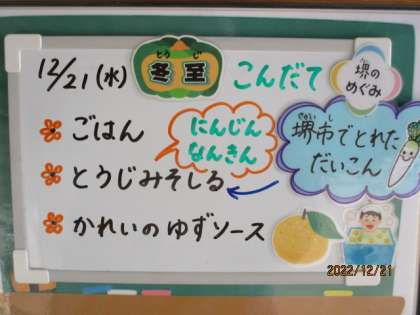 12/21(水)
とうじ
冬至
こんだて
堺の
めぐみ
ごはん
にんじん
なんきん
さかいし
堺市でとれた
だいこん
とうじみそしる
かれいのゆずソース
2022/12/21